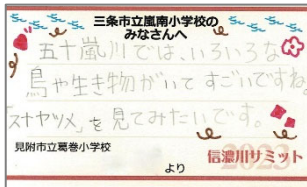 三条市立嵐南小学校の
みなさんへ
五十嵐川では、いろいろな
鳥や生き物がいてすごいですね。
「スナヤツメ」を見てみたいです。
見附市立葛巻小学校
より
2023
信濃川サミット